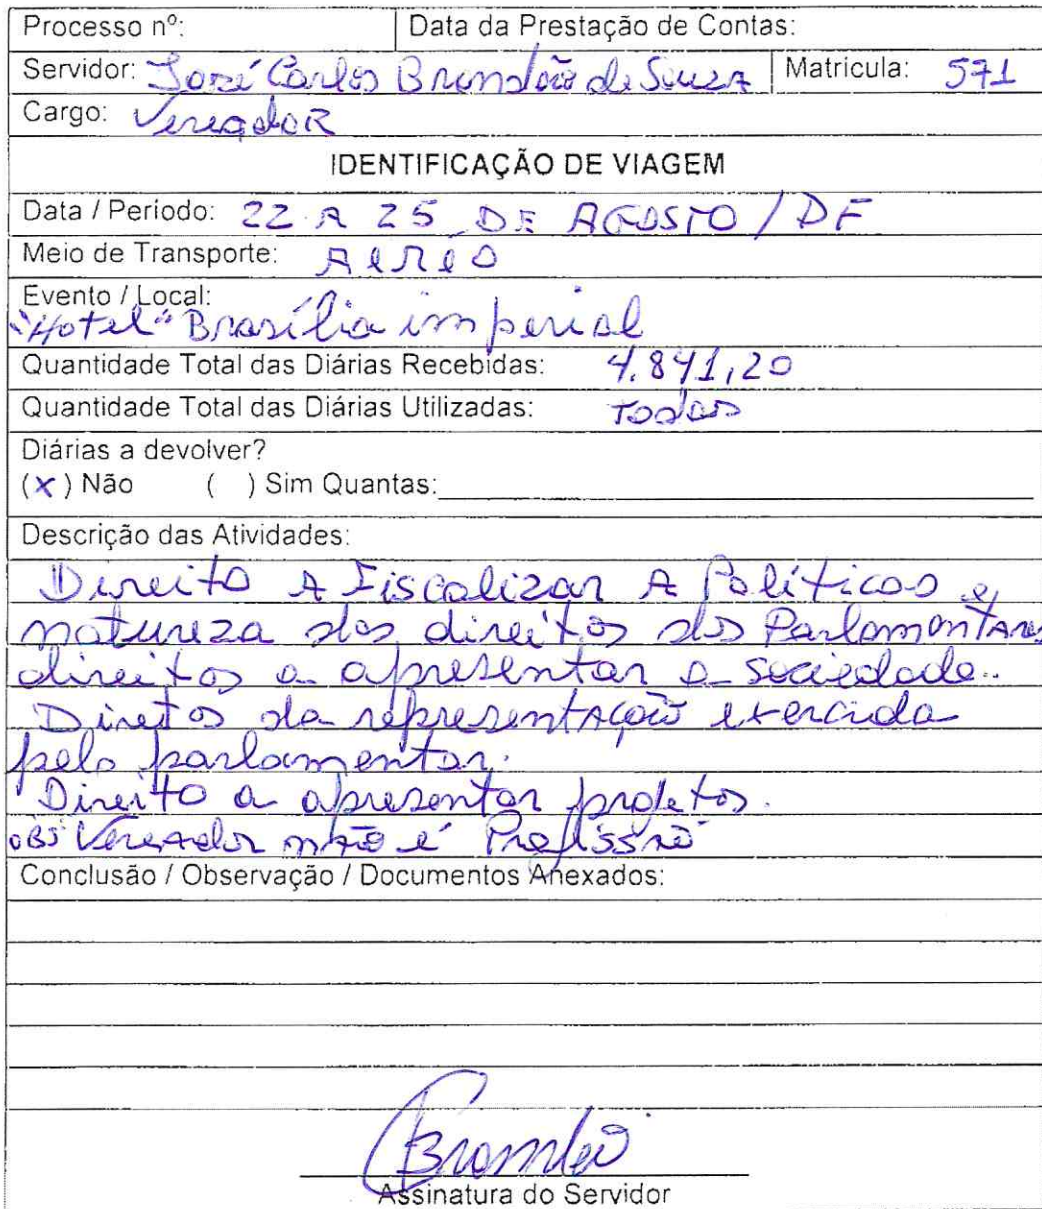 Processo nº: Data da Prestação de Contas:
Servidor: José Carlos Brandão de Souza Matricula: 571
Cargo: Vereador
IDENTIFICAÇÃO DE VIAGEM
Data / Período: 22 A 25 DE AGOSTO / DF
Meio de Transporte: Aéreo
Evento / Local:
"Hotel" Brasília imperial
Quantidade Total das Diárias Recebidas: 4.841,20
Quantidade Total das Diárias Utilizadas: Todas
Diárias a devolver?
(x) Não ( ) Sim Quantas:
Descrição das Atividades:
Direito A Fiscalizar A Políticas e
natureza dos direitos dos Parlamentares
direitos a apresentar a sociedade..
Direitos da representação exercida
pelo parlamentar.
Direito a apresentar projetos.
OBS Vereador não é Profissão
Conclusão / Observação / Documentos Anexados:
Brandão
Assinatura do Servidor